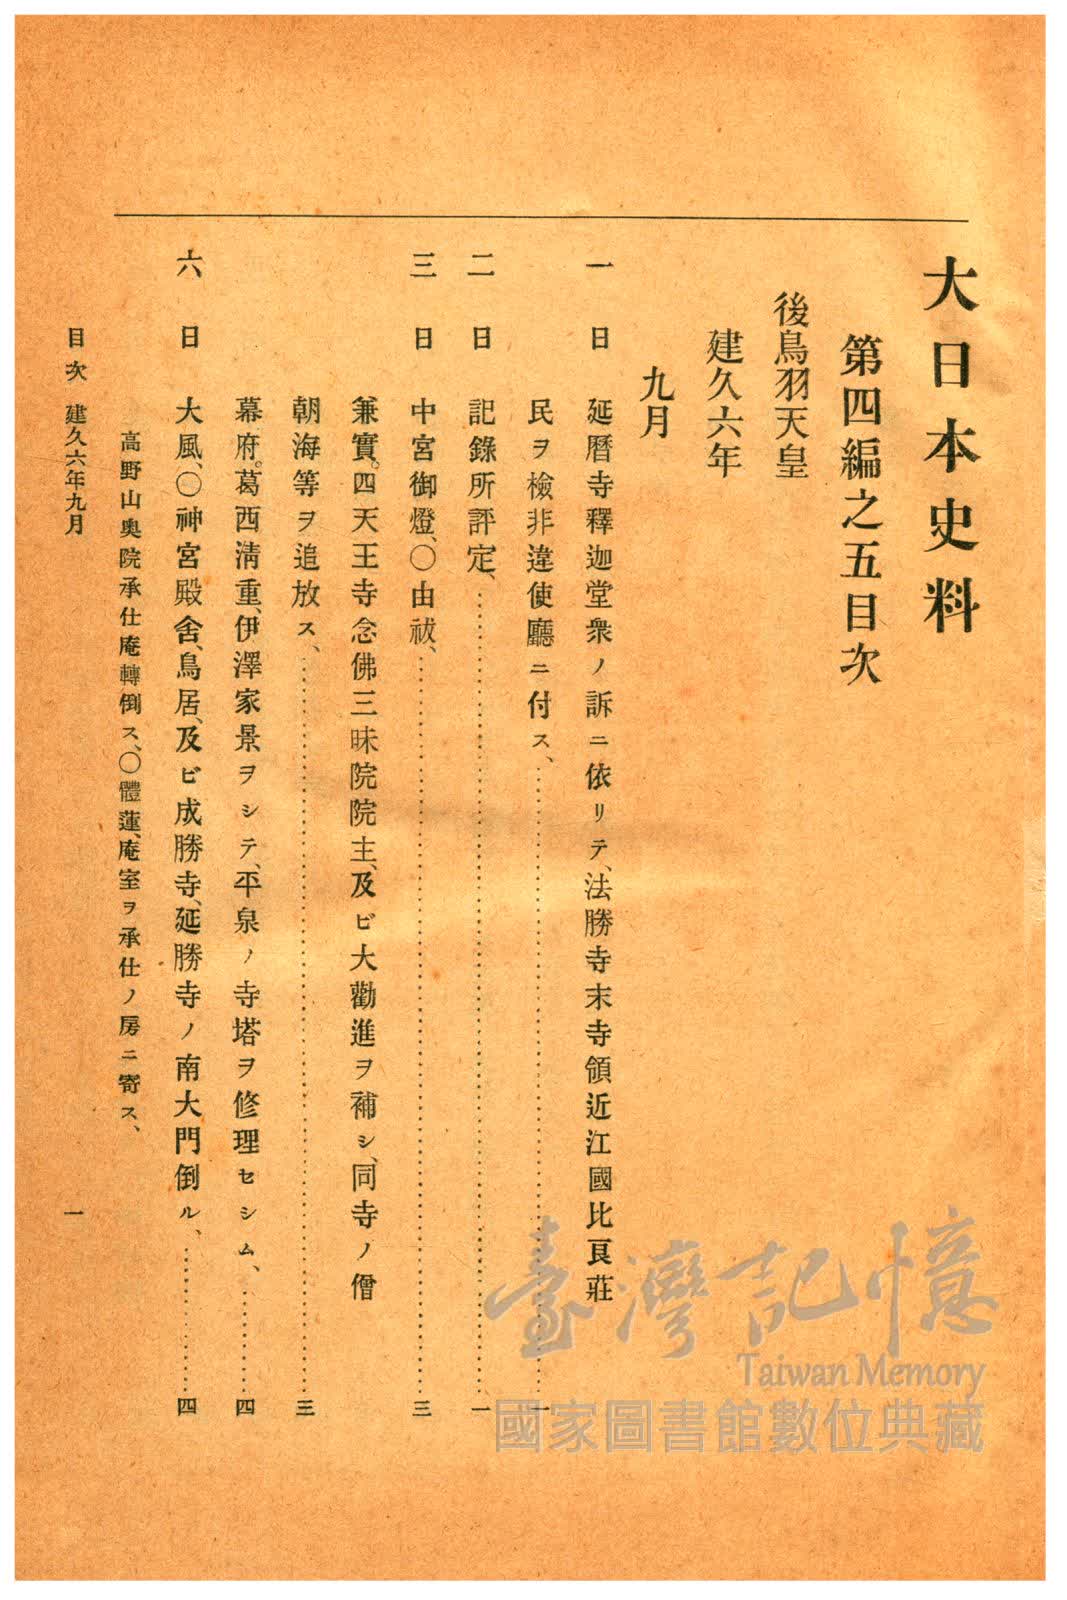 大日本史料
第四編之五目次
後鳥羽天皇
建久六年
九月
一日 延曆寺釋迦堂衆ノ訴ニ依リテ、法勝寺末寺領近江國比良莊
民ヲ檢非違使廳ニ付ス、……一
二日 記錄所評定、……一
三日 中宮御燈、〇由祓、……三
兼實。四天王寺念佛三昧院院主、及ビ大勸進ヲ補シ、同寺ノ僧
朝海等ヲ追放ス、……三
幕府。葛西淸重、伊澤家景ヲシテ、平泉ノ寺塔ヲ修理セシム、……四
六日 大風、〇神宮殿舍、鳥居、及ビ成勝寺、延勝寺ノ南大門倒ル、……四
高野山奧院承仕庵轉倒ス、〇體蓮、庵室ヲ承仕ノ房ニ寄ス、
目次 建久六年九月 一
臺灣記憶
Taiwan Memory
國家圖書館數位典藏